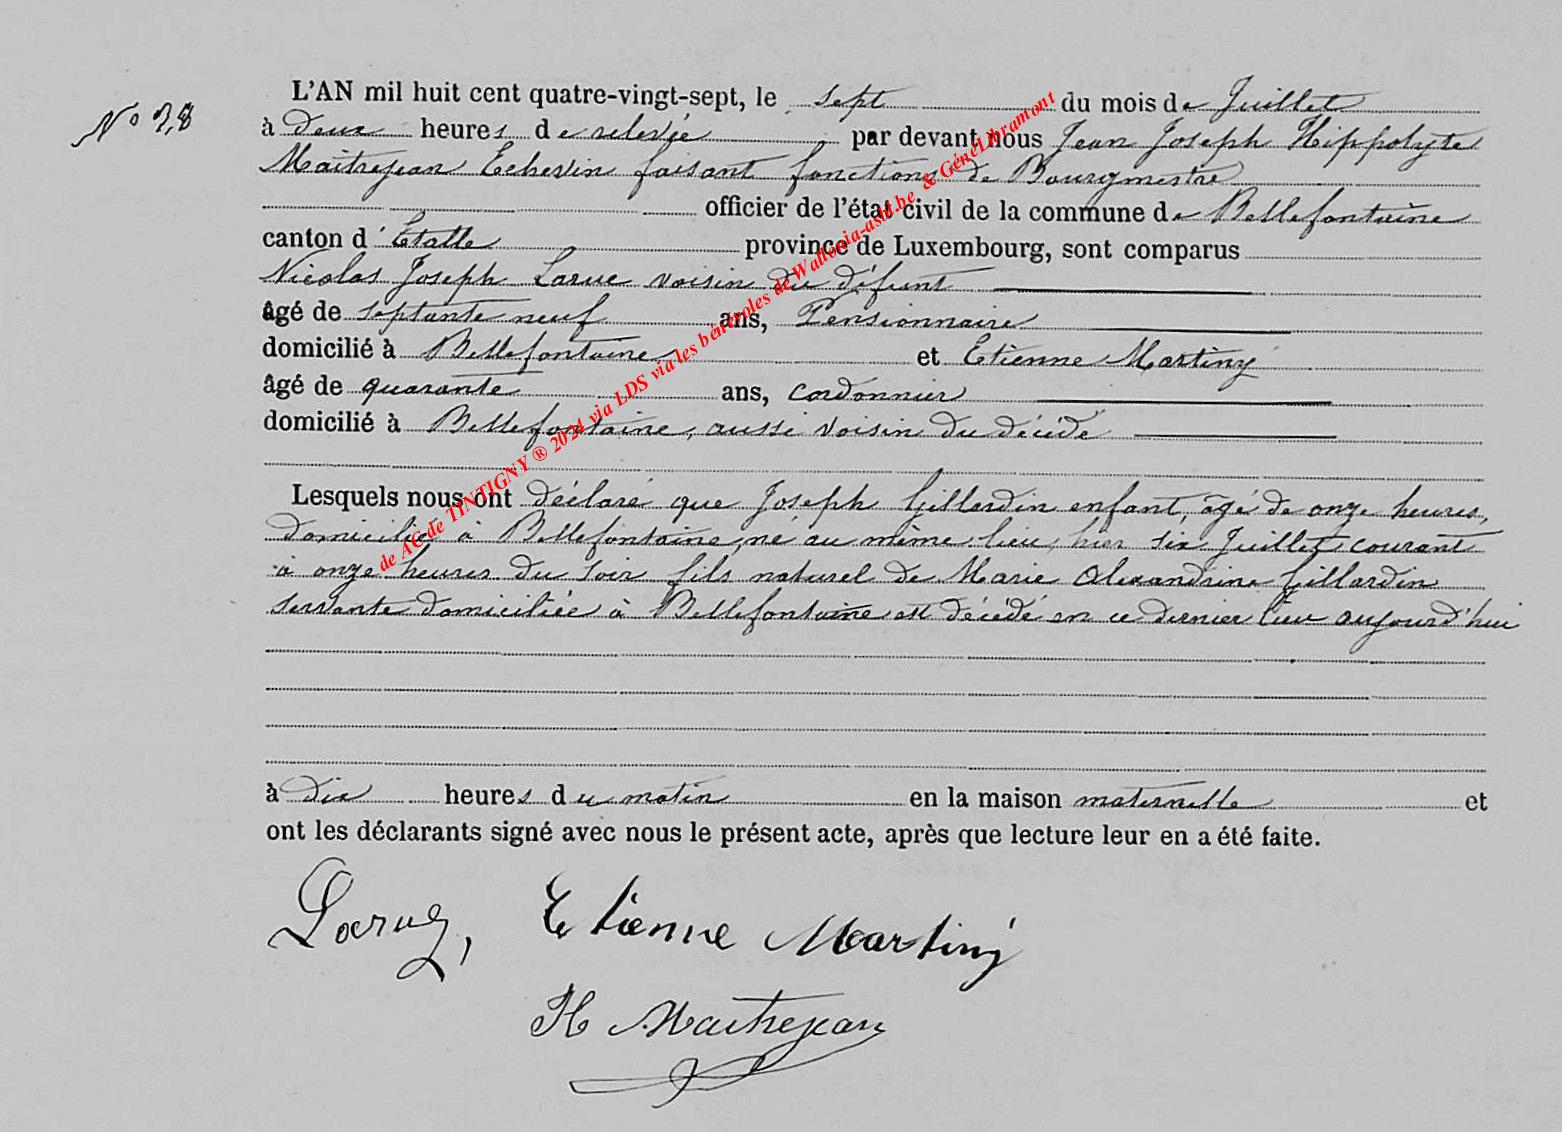 L'AN mil huit cent quatre-vingt-sept, le sept du mois de Juillet
N° 28
à deux heures de relevée par devant nous Jean Joseph Hippolyte
Maitrejean Echevin faisant fonctions de Bourgmestre
officier de l'état civil de la commune de Bellefontaine
canton d'Etalle province de Luxembourg, sont comparus
Nicolas Joseph Larue voisin du défunt
âgé de septante neuf ans, Pensionnaire
domicilié à Bellefontaine et Etienne Martiny
âgé de quarante ans, cordonnier
domicilié à Bellefontaine, aussi voisin du décédé
Lesquels nous ont déclaré que Joseph Gillardin enfant, âgé de onze heures,
domicilié à Bellefontaine, né au même lieu, hier six Juillet courant
à onze heures du soir fils naturel de Marie Alexandrine Gillardin
servante domiciliée à Bellefontaine est décédé en ce dernier lieu aujourd'hui
à dix heures du matin en la maison maternelle et
ont les déclarants signé avec nous le présent acte, après que lecture leur en a été faite.
Larue, Etienne Martiny
H Maitrejean
de AC de TINTIGNY ® 2024 via LDS via les bénévoles de Wallonia-asbl.be & GéneLibramont